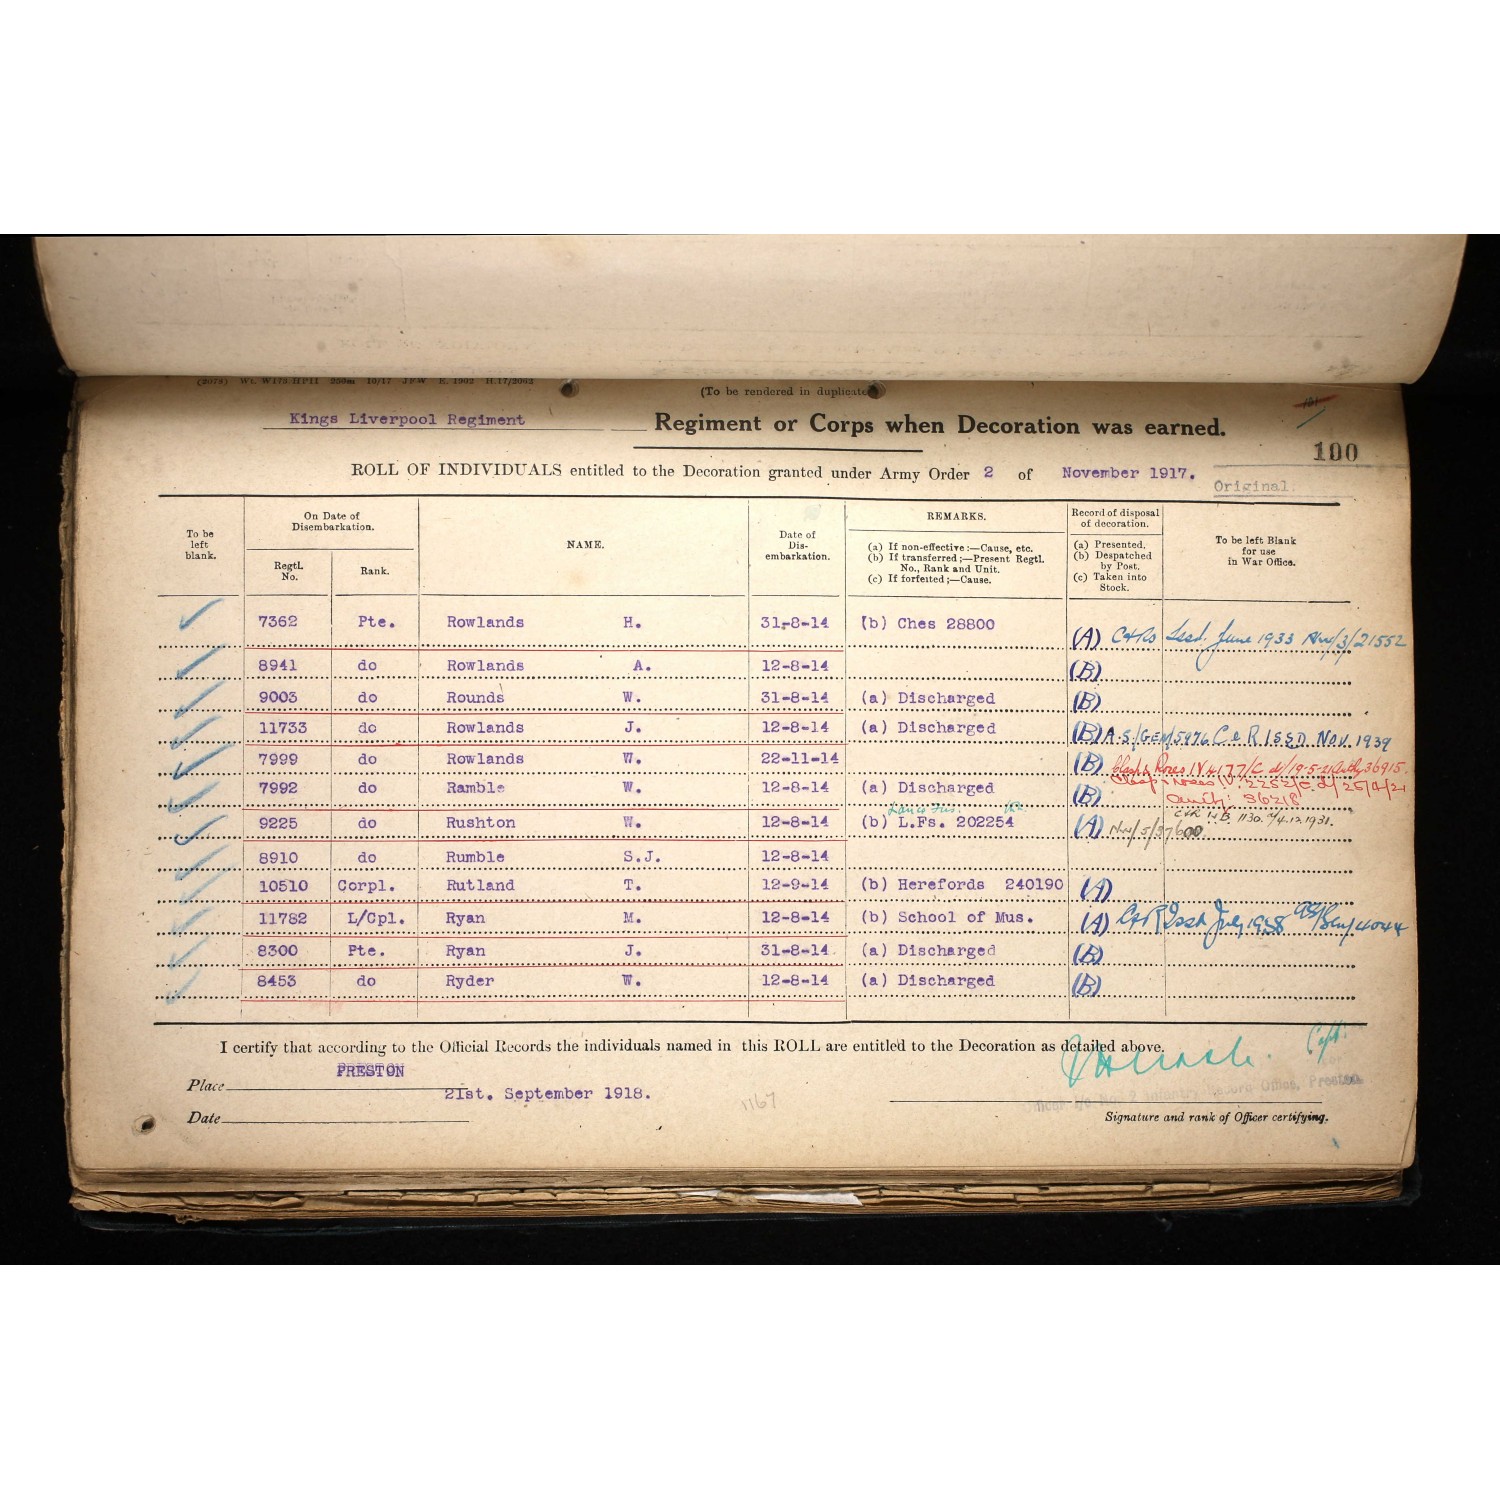 (2073) Wt. W173.HP11 250m 10/17 JFW E. 1902 H.17/2002
(To be rendered in duplicate
Kings Liverpool Regiment Regiment or Corps when Decoration was earned.
100
ROLL OF INDIVIDUALS entitled to the Decoration granted under Army Order 2 of November 1917.
Original.
To be left blank.
On Date of Disembarkation.
Regtl. No.
Rank.
NAME.
Date of Dis-embarkation.
REMARKS.
(a) If non-effective:—Cause, etc.
(b) If transferred;—Present Regtl. No., Rank and Unit.
(c) If forfeited;—Cause.
Record of disposal of decoration.
(a) Presented.
(b) Despatched by Post.
(c) Taken into Stock.
To be left Blank for use in War Office.
7362 Pte. Rowlands H. 31-8-14 (b) Ches 28800 (A) C&Rs Issd. June 1933 NW/3/21552
8941 do Rowlands A. 12-8-14 (B)
9003 do Rounds W. 31-8-14 (a) Discharged (B)
11733 do Rowlands J. 12-8-14 (a) Discharged (B) A.S./GEN/5476 C & R ISSD NOV. 1939
7999 do Rowlands W. 22-11-14 (B) Clasp & Roses IV 4177/C d/19-5-21 Authy 36915.
7992 do Ramble W. 12-8-14 (a) Discharged (B) Clasp & Roses IV. 2252/C d/ 25/4/21
Authy: 36218
Lancs Fus.
9225 do Rushton W. 12-8-14 (b) L.Fs. 202254 (A) NW/5/37600. C&R 1130. 4.12.1931.
8910 do Rumble S.J. 12-8-14
10510 Corpl. Rutland T. 12-9-14 (b) Herefords 240190 (A)
11782 L/Cpl. Ryan M. 12-8-14 (b) School of Mus. (A) C&R Issd July 1938 AS/Gen/4044
8300 Pte. Ryan J. 31-8-14. (a) Discharged (B)
8453 do Ryder W. 12-8-14 (a) Discharged (B)
I certify that according to the Official Records the individuals named in this ROLL are entitled to the Decoration as detailed above.
Capt.
Place PRESTON
Officer i/c No. 2 Infantry Record Office, Preston.
21st. September 1918.
1167
Date
Signature and rank of Officer certifying.